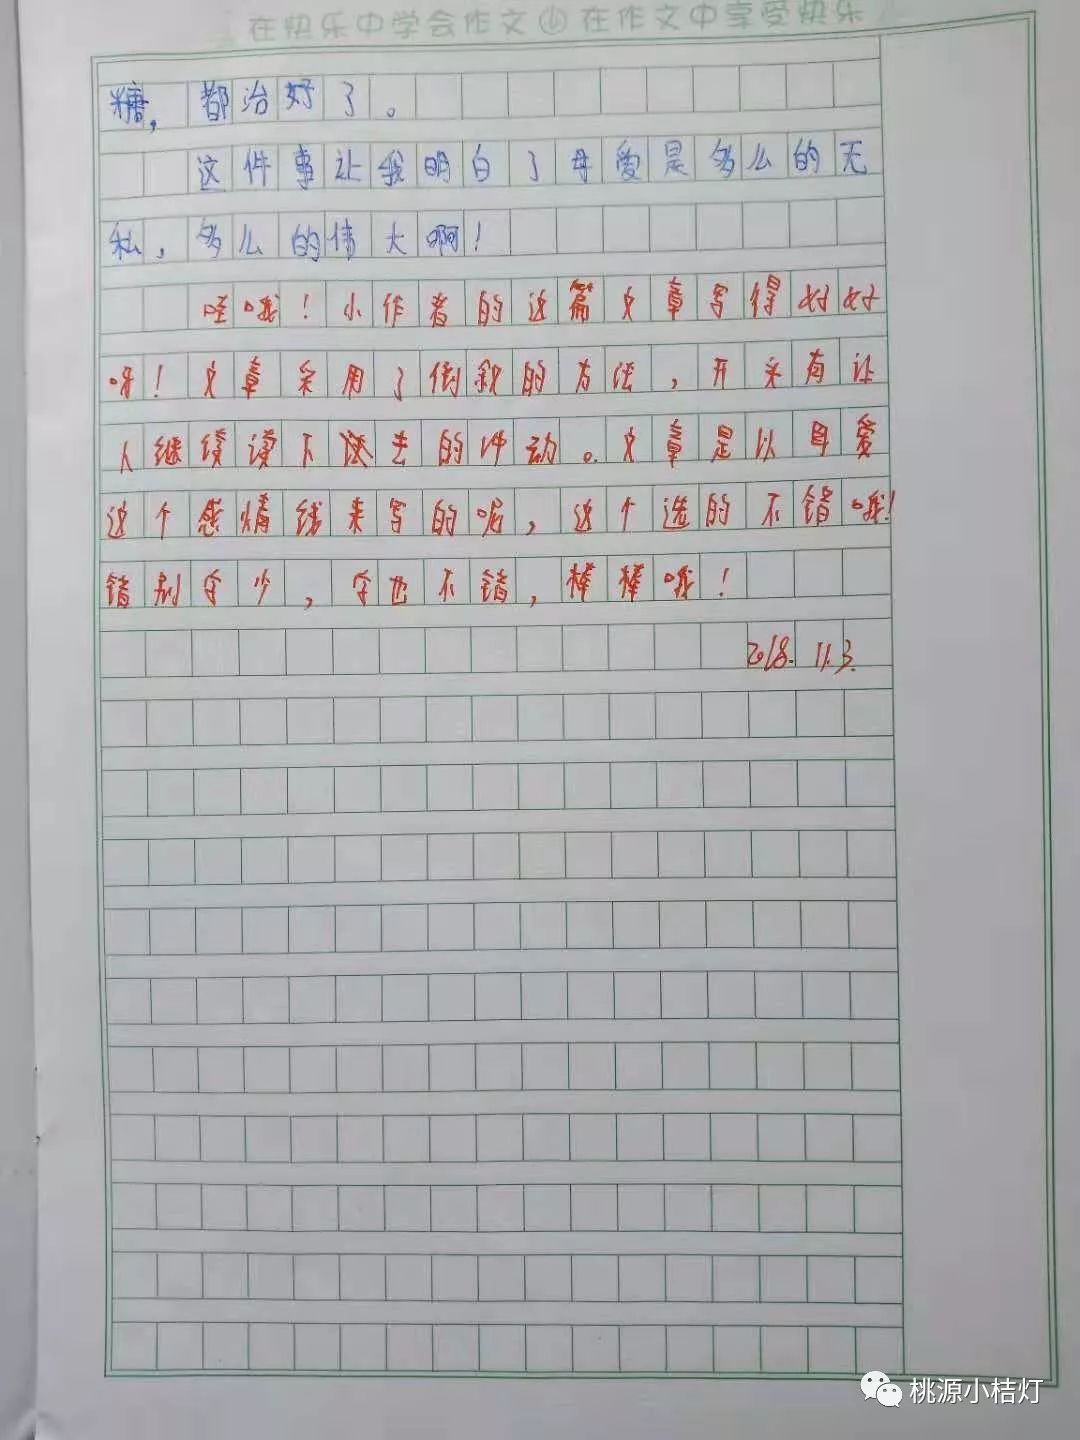 在快乐中学会作文 在作文中享受快乐
糖，都治好了。
这件事让我明白了母爱是多么的无
私，多么的伟大啊！
哇哦！小作者的这篇文章写得好好
呀！文章采用了倒叙的方法，开采有让
人继续读下去的冲动。文章是以母爱
这个感情线来写的呢，这个选的不错哦！
错别字少，字也不错，棒棒哦！
2018.11.3.
桃源小桔灯